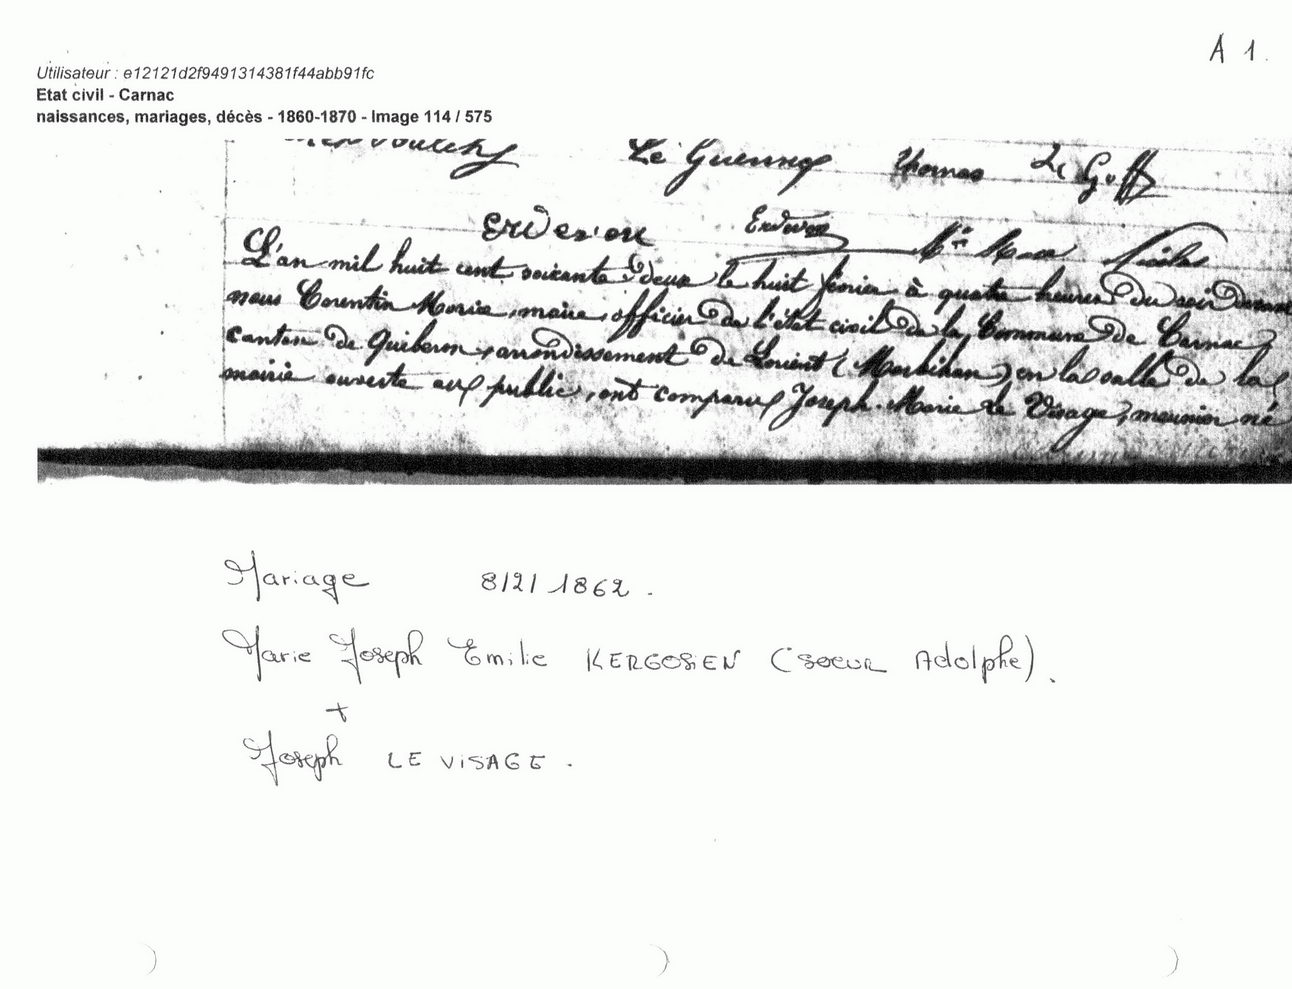 A 1.
Utilisateur : e12121d2f9491314381f44abb91fc
Etat civil - Carnac
naissances, mariages, décès - 1860-1870 - Image 114 / 575
Le Guennec Thomas Le Goff
Erdeven Nicolas
L'an mil huit cent soixante deux le huit février à quatre heures du soir devant
nous Corentin Marie, maire, officier de l'état civil de la Commune de Carnac
canton de Quiberon, arrondissement de Lorient (Morbihan) en la salle de la
mairie ouverte au public, ont comparu Joseph Marie Le Visage, meunier né
Mariage 8/2/1862.
Marie Joseph Emilie KERGOSIEN (SOEUR Adolphe).
+
Joseph LE VISAGE.